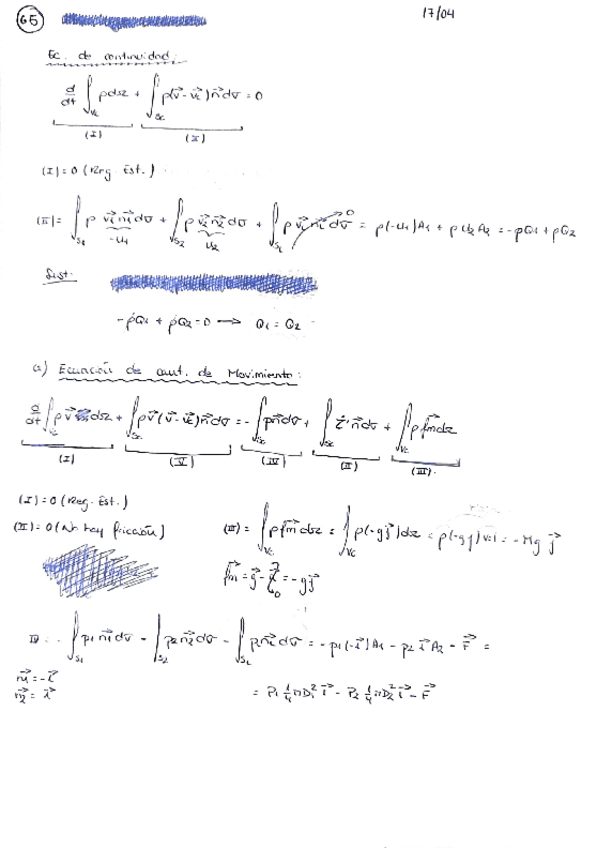 65 17/04
Ec. de continuidad:
d/dt ∫_Vc ρdΩ + ∫_Sc ρ(v⃗ - v⃗c)n⃗dσ = 0
(I) (II)
(I) = 0 (Reg. Est.)
(II) = ∫_S1 ρ v⃗1 n⃗1 dσ + ∫_S2 ρ v⃗2 n⃗2 dσ + ∫_SL ρ v⃗L n⃗L dσ = ρ(-u1)A1 + ρ u2 A2 = -ρQ1 + ρQ2
-u1 u2 0
Sust:
-ρQ1 + ρQ2 = 0 → Q1 = Q2
a) Ecuación de cant. de Movimiento:
d/dt ∫_Vc ρ v⃗ dΩ + ∫_Sc ρv⃗(v⃗ - v⃗c)n⃗dσ = - ∫_Sc pn⃗dσ + ∫_Sc τ⃗' n⃗dσ + ∫_Vc ρ f⃗m dΩ
(I) (V) (IV) (II) (III)
(I) = 0 (Reg. Est.)
(II) = 0 (No hay fricción) (III) = ∫_Vc ρ f⃗m dΩ = ∫_Vc ρ(-g j⃗)dΩ = ρ(-g j⃗) Vc = -Mg j⃗
f⃗m = g⃗ - = -g j⃗
IV = - ∫_S1 p1 n⃗1 dσ - ∫_S2 p2 n⃗2 dσ - ∫_SL p n⃗ dσ = -p1(-i⃗)A1 - p2 i⃗ A2 - F⃗ =
n⃗1 = -i⃗
n⃗2 = i⃗ = P1 1/4 πD1² i⃗ - P2 1/4 πD2² i⃗ - F⃗